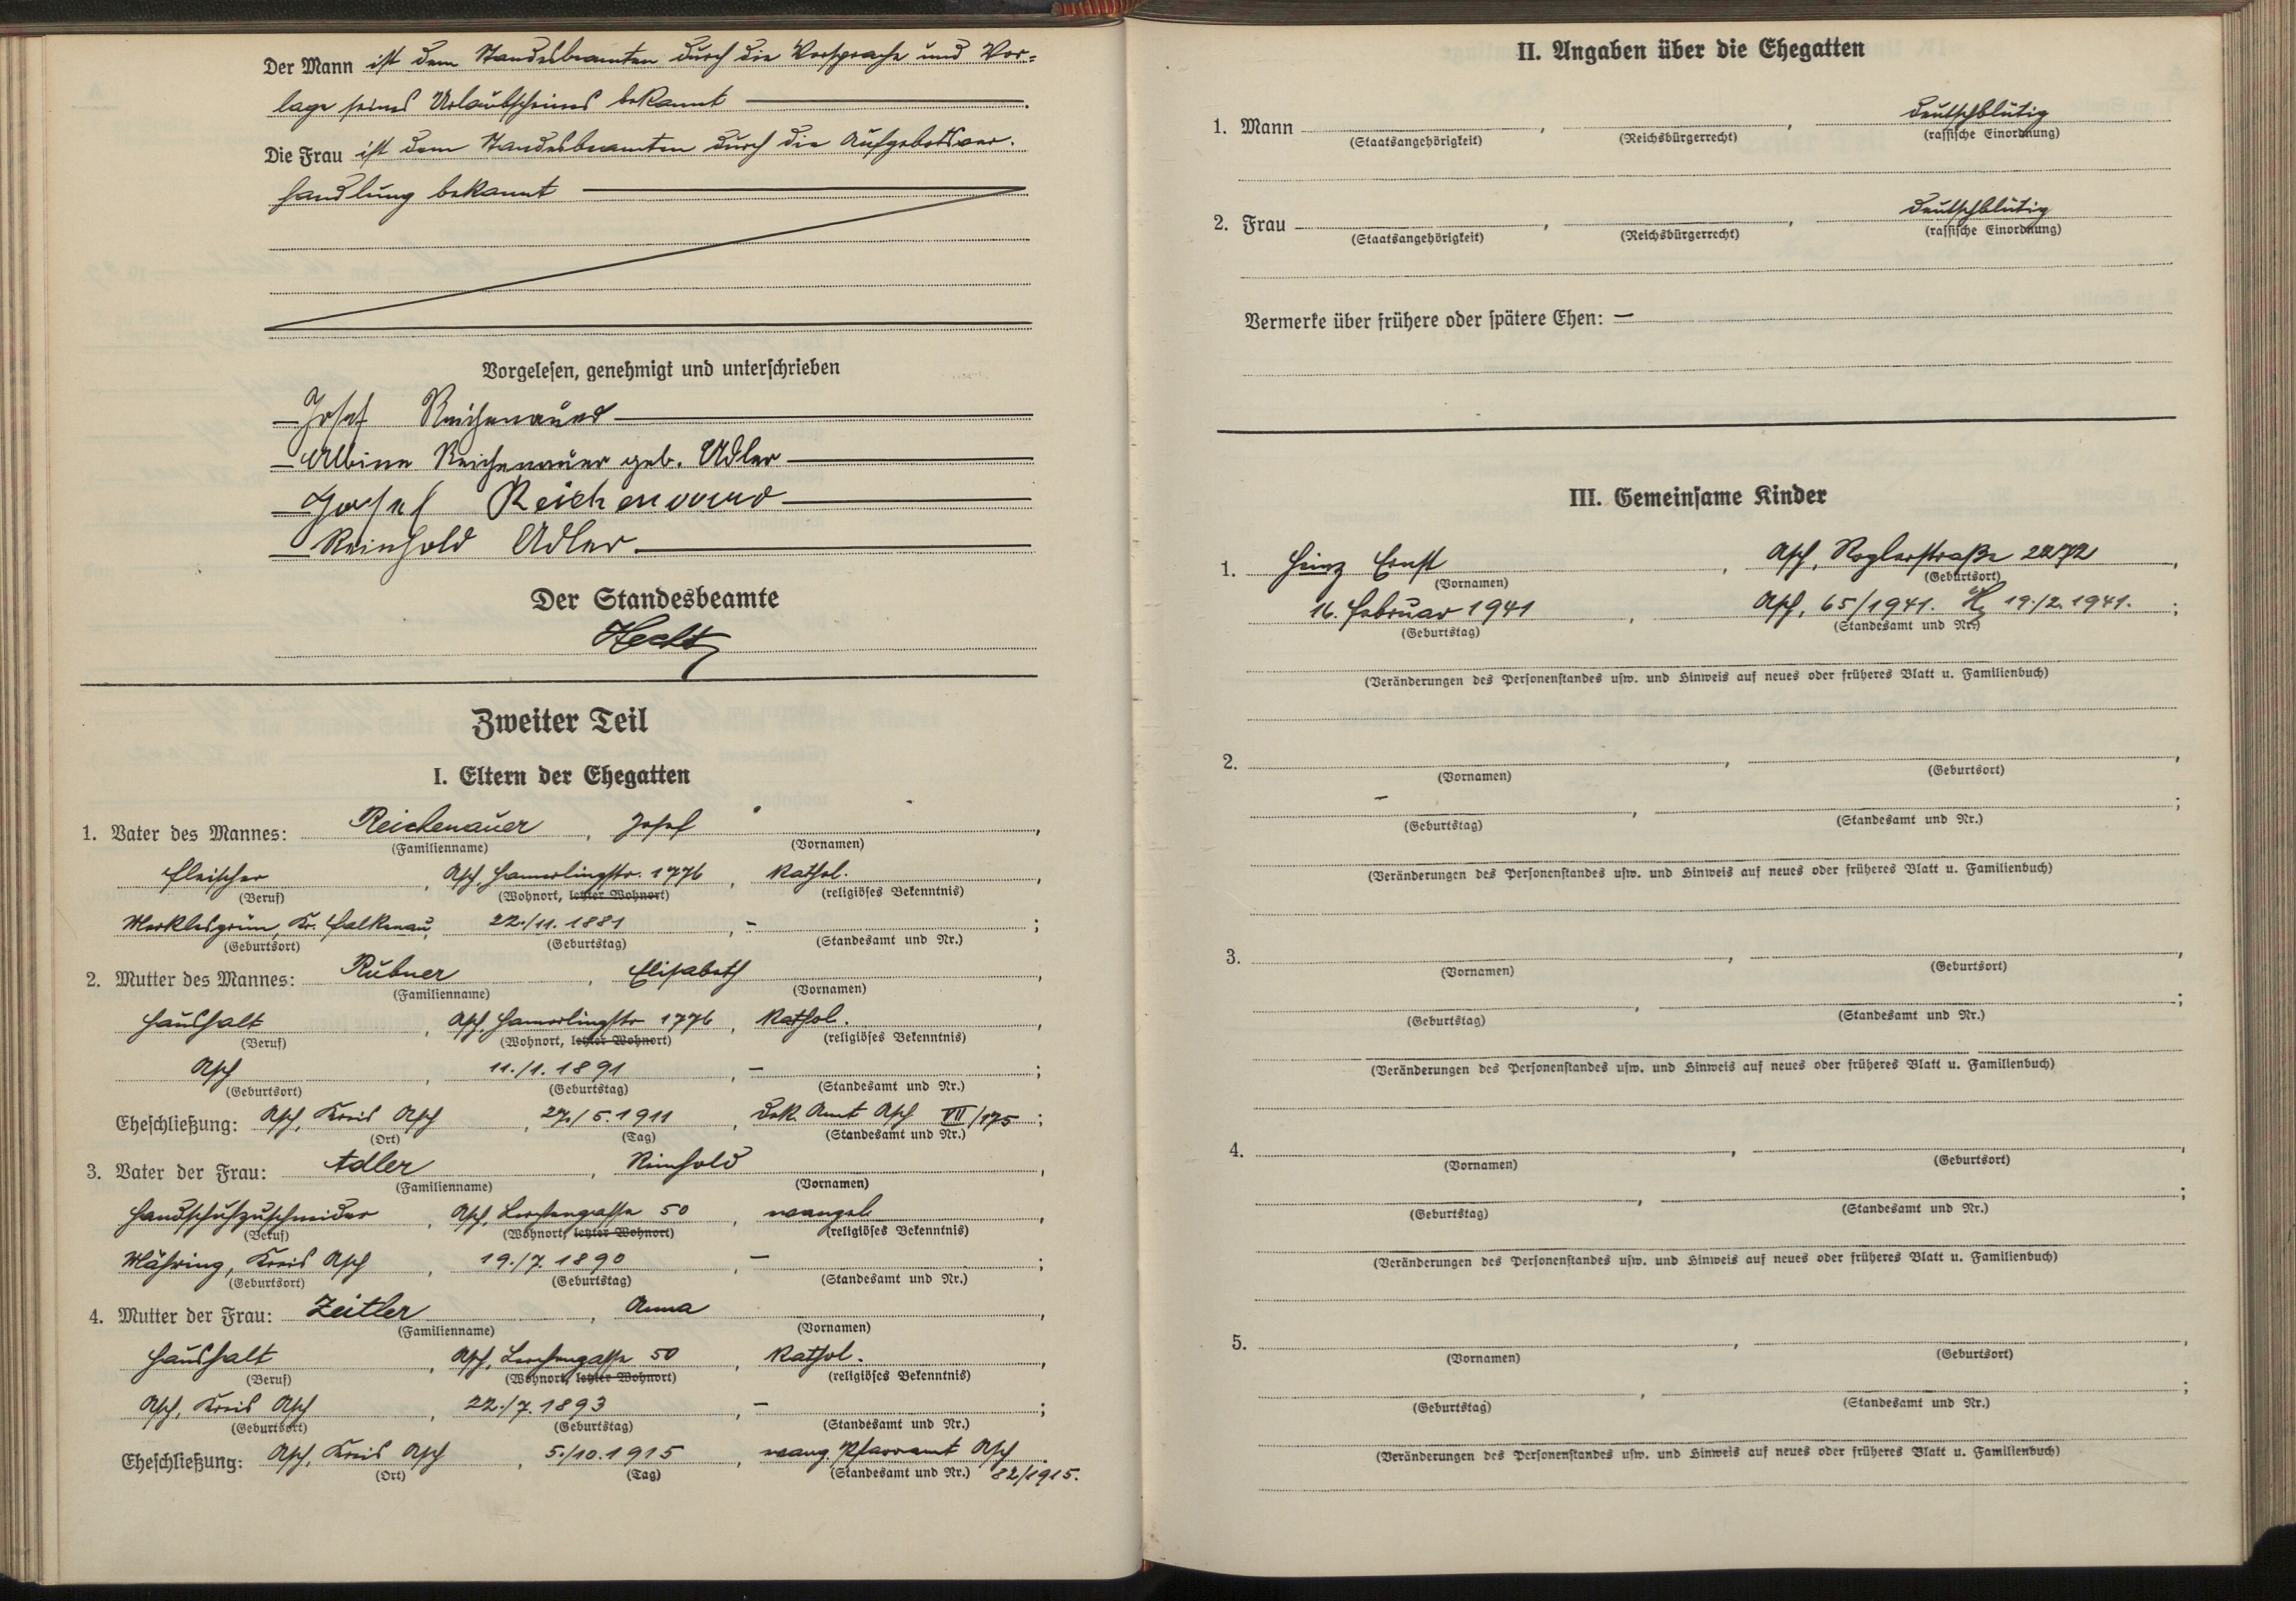 Der Mann ist dem Standesbeamten durch die Vorsprache und Vor-
lage seines Urlaubscheines bekannt
Die Frau ist dem Standesbeamten durch die Aufgebotsver-
handlung bekannt
Vorgelesen, genehmigt und unterschrieben
Josef Reichenauer
Albine Reichenauer geb. Adler
Josef Reichenauer
Reinhold Adler
Der Standesbeamte
Hecht
Zweiter Teil
I. Eltern der Ehegatten
1. Vater des Mannes: Reichenauer, Josef,
(Familienname) (Vornamen)
Fleischer, Asch, Hamerlingstr. 1776, kathol.,
(Beruf) (Wohnort, letzter Wohnort) (religiöses Bekenntnis)
Merklesgrün, Kr. Falkenau, 22./11. 1881, –;
(Geburtsort) (Geburtstag) (Standesamt und Nr.)
2. Mutter des Mannes: Rubner, Elisabeth,
(Familienname) (Vornamen)
Haushalt, Asch, Hamerlingstr 1776, kathol.,
(Beruf) (Wohnort, letzter Wohnort) (religiöses Bekenntnis)
Asch, 11./1. 1891, –;
(Geburtsort) (Geburtstag) (Standesamt und Nr.)
Eheschließung: Asch, Kreis Asch, 27./5. 1911, Dek. Amt Asch VII/175;
(Ort) (Tag) (Standesamt und Nr.)
3. Vater der Frau: Adler, Reinhold,
(Familienname) (Vornamen)
Handschuhzuschneider, Asch, Lerchengasse 50, evangel.,
(Beruf) (Wohnort, letzter Wohnort) (religiöses Bekenntnis)
Mähring, Kreis Asch, 19./7. 1890, –;
(Geburtsort) (Geburtstag) (Standesamt und Nr.)
4. Mutter der Frau: Zeitler, Anna,
(Familienname) (Vornamen)
Haushalt, Asch, Lerchengasse 50, kathol.,
(Beruf) (Wohnort, letzter Wohnort) (religiöses Bekenntnis)
Asch, Kreis Asch, 22./7. 1893, –;
(Geburtsort) (Geburtstag) (Standesamt und Nr.)
Eheschließung: Asch, Kreis Asch, 5./10. 1915, evang. Pfarramt Asch
(Ort) (Tag) (Standesamt und Nr.) 82/1915.
II. Angaben über die Ehegatten
1. Mann , , deutschblütig
(Staatsangehörigkeit) (Reichsbürgerrecht) (rassische Einordnung)
2. Frau , , deutschblütig
(Staatsangehörigkeit) (Reichsbürgerrecht) (rassische Einordnung)
Vermerke über frühere oder spätere Ehen: –
III. Gemeinsame Kinder
1. Heinz Ernst, Asch, Roglerstraße 2272,
(Vornamen) (Geburtsort)
16. Februar 1941, Asch, 65/1941. 19./2. 1941.;
(Geburtstag) (Standesamt und Nr.)
(Veränderungen des Personenstandes usw. und Hinweis auf neues oder früheres Blatt u. Familienbuch)
2. , ,
(Vornamen) (Geburtsort)
– , ;
(Geburtstag) (Standesamt und Nr.)
(Veränderungen des Personenstandes usw. und Hinweis auf neues oder früheres Blatt u. Familienbuch)
3. , ,
(Vornamen) (Geburtsort)
, ;
(Geburtstag) (Standesamt und Nr.)
(Veränderungen des Personenstandes usw. und Hinweis auf neues oder früheres Blatt u. Familienbuch)
4. , ,
(Vornamen) (Geburtsort)
, ;
(Geburtstag) (Standesamt und Nr.)
(Veränderungen des Personenstandes usw. und Hinweis auf neues oder früheres Blatt u. Familienbuch)
5. , ,
(Vornamen) (Geburtsort)
, ;
(Geburtstag) (Standesamt und Nr.)
(Veränderungen des Personenstandes usw. und Hinweis auf neues oder früheres Blatt u. Familienbuch)